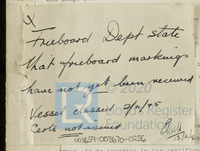 Freeboard Dept state
that freeboard markings
have not yet been received
Vessel classed 9/4/45
Certs not issued
© 2020
Lloyd's Register
Foundation
003659-003670-0256